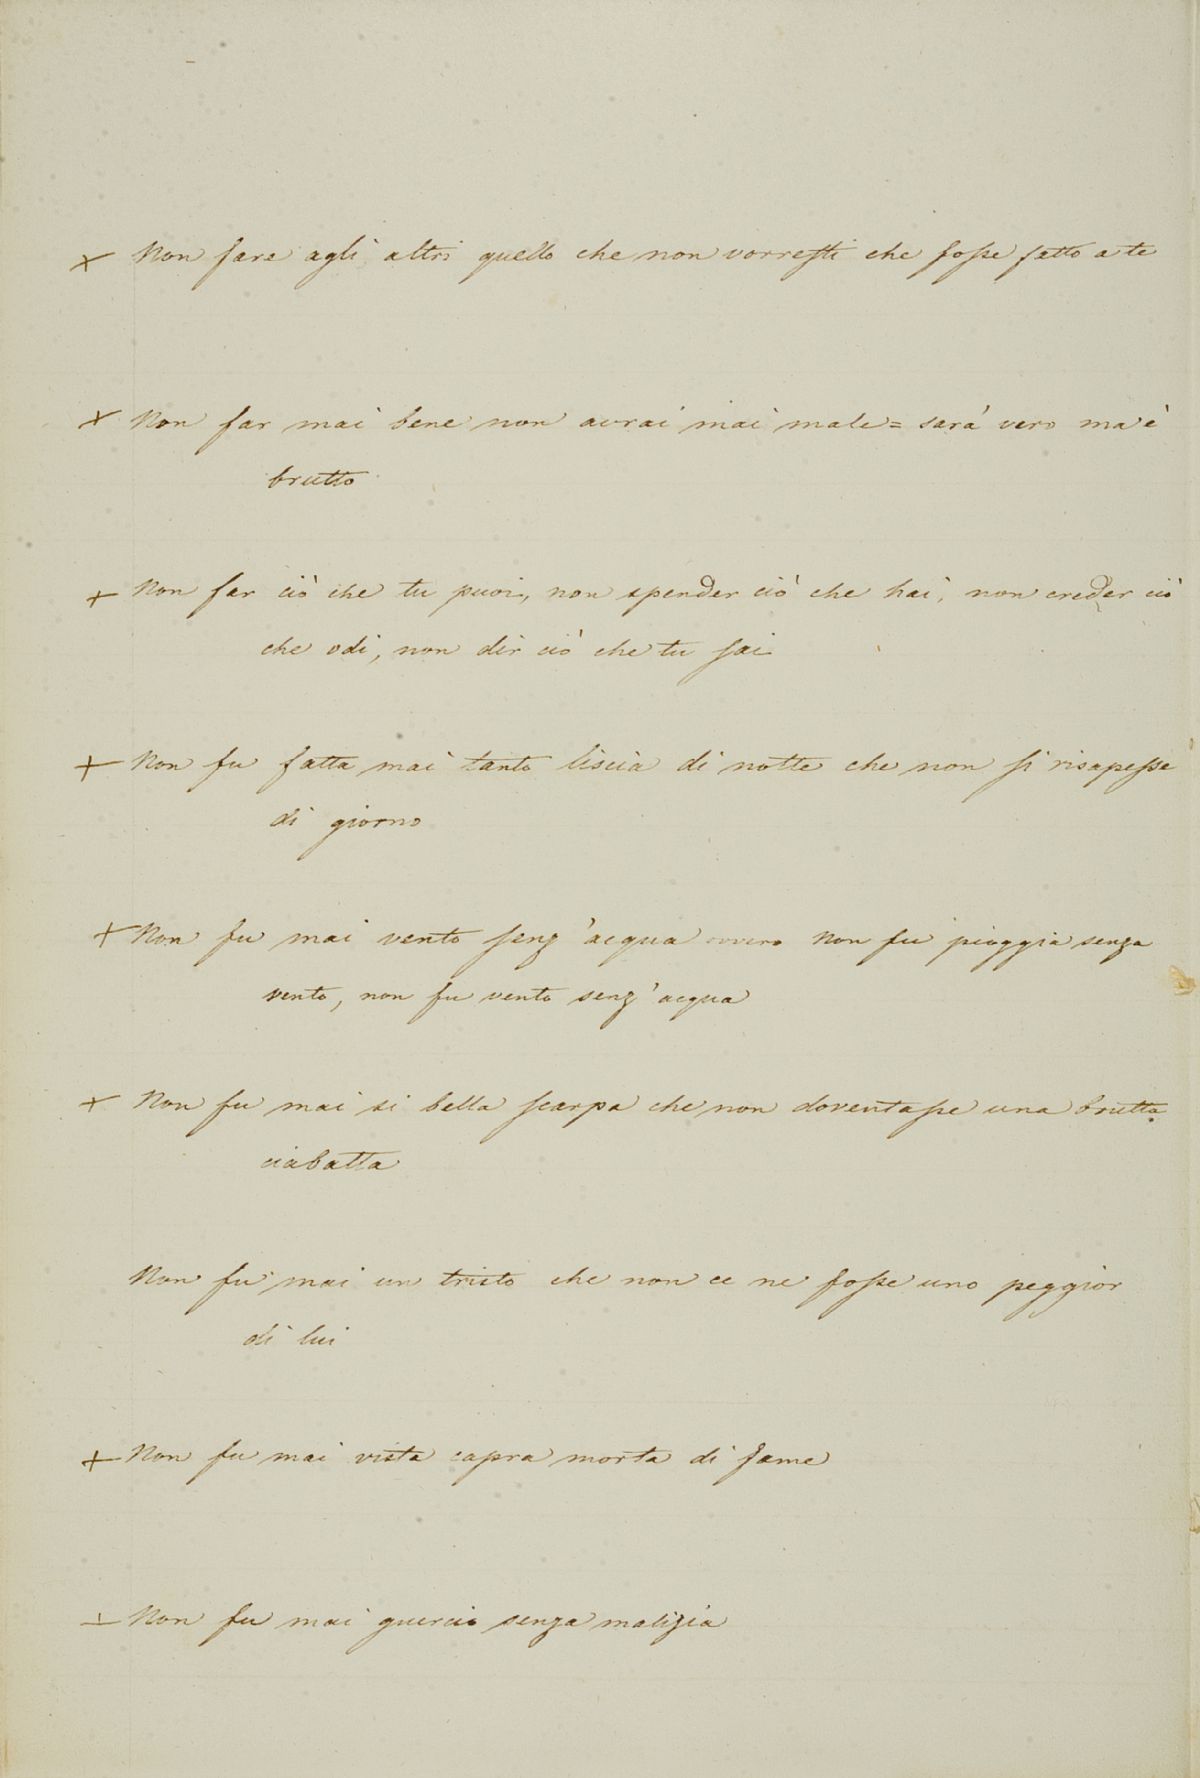 + Non fare agli altri quello che non vorresti che fosse fatto a te
+ Non far mai bene non avrai mai male = sarà vero ma è
brutto
+ Non far ciò che tu puoi, non spender ciò che hai, non creder ciò
che odi, non dir ciò che tu sai
+ Non fu fatta mai tanto liscia di notte che non si risapesse
di giorno
+ Non fu mai vento senz'acqua ovvero non fu pioggia senza
vento, non fu vento senz'acqua
+ Non fu mai si bella scarpa che non doventasse una brutta
ciabatta
Non fu mai un tristo che non ce ne fosse uno peggior
di lui
+ Non fu mai vista capra morta di fame
+ Non fu mai guercio senza malizia